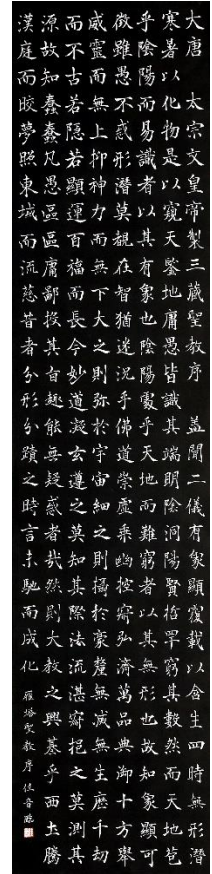 大唐 太宗文皇帝製三蔵聖教序 蓋聞二儀有象顯覆載以含生四時無形潛
寒暑以化物是以窺天鑒地庸愚皆識其端明陰洞陽賢哲罕窮其數然而天地苞
乎陰陽而易識者以其有象也陰陽處乎天地而難窮者以其無形也故知象顯可
徵雖愚不惑形潛莫覩在智猶迷況乎佛道崇虛乘幽控寂弘濟萬品典御十方舉
威靈而無上抑神力而無下大之則彌於宇宙細之則攝於豪釐無滅無生歷千劫
而不古若隱若顯運百福而長今妙道凝玄遵之莫知其際法流湛寂挹之莫測其
源故知蠢蠢凡愚區區庸鄙投其旨趣能無疑惑者哉然則大教之興基乎西土騰
漢庭而皎夢照東域而流慈昔者分形分蹟之時言未馳而成化 雁塔聖教序 佳音臨